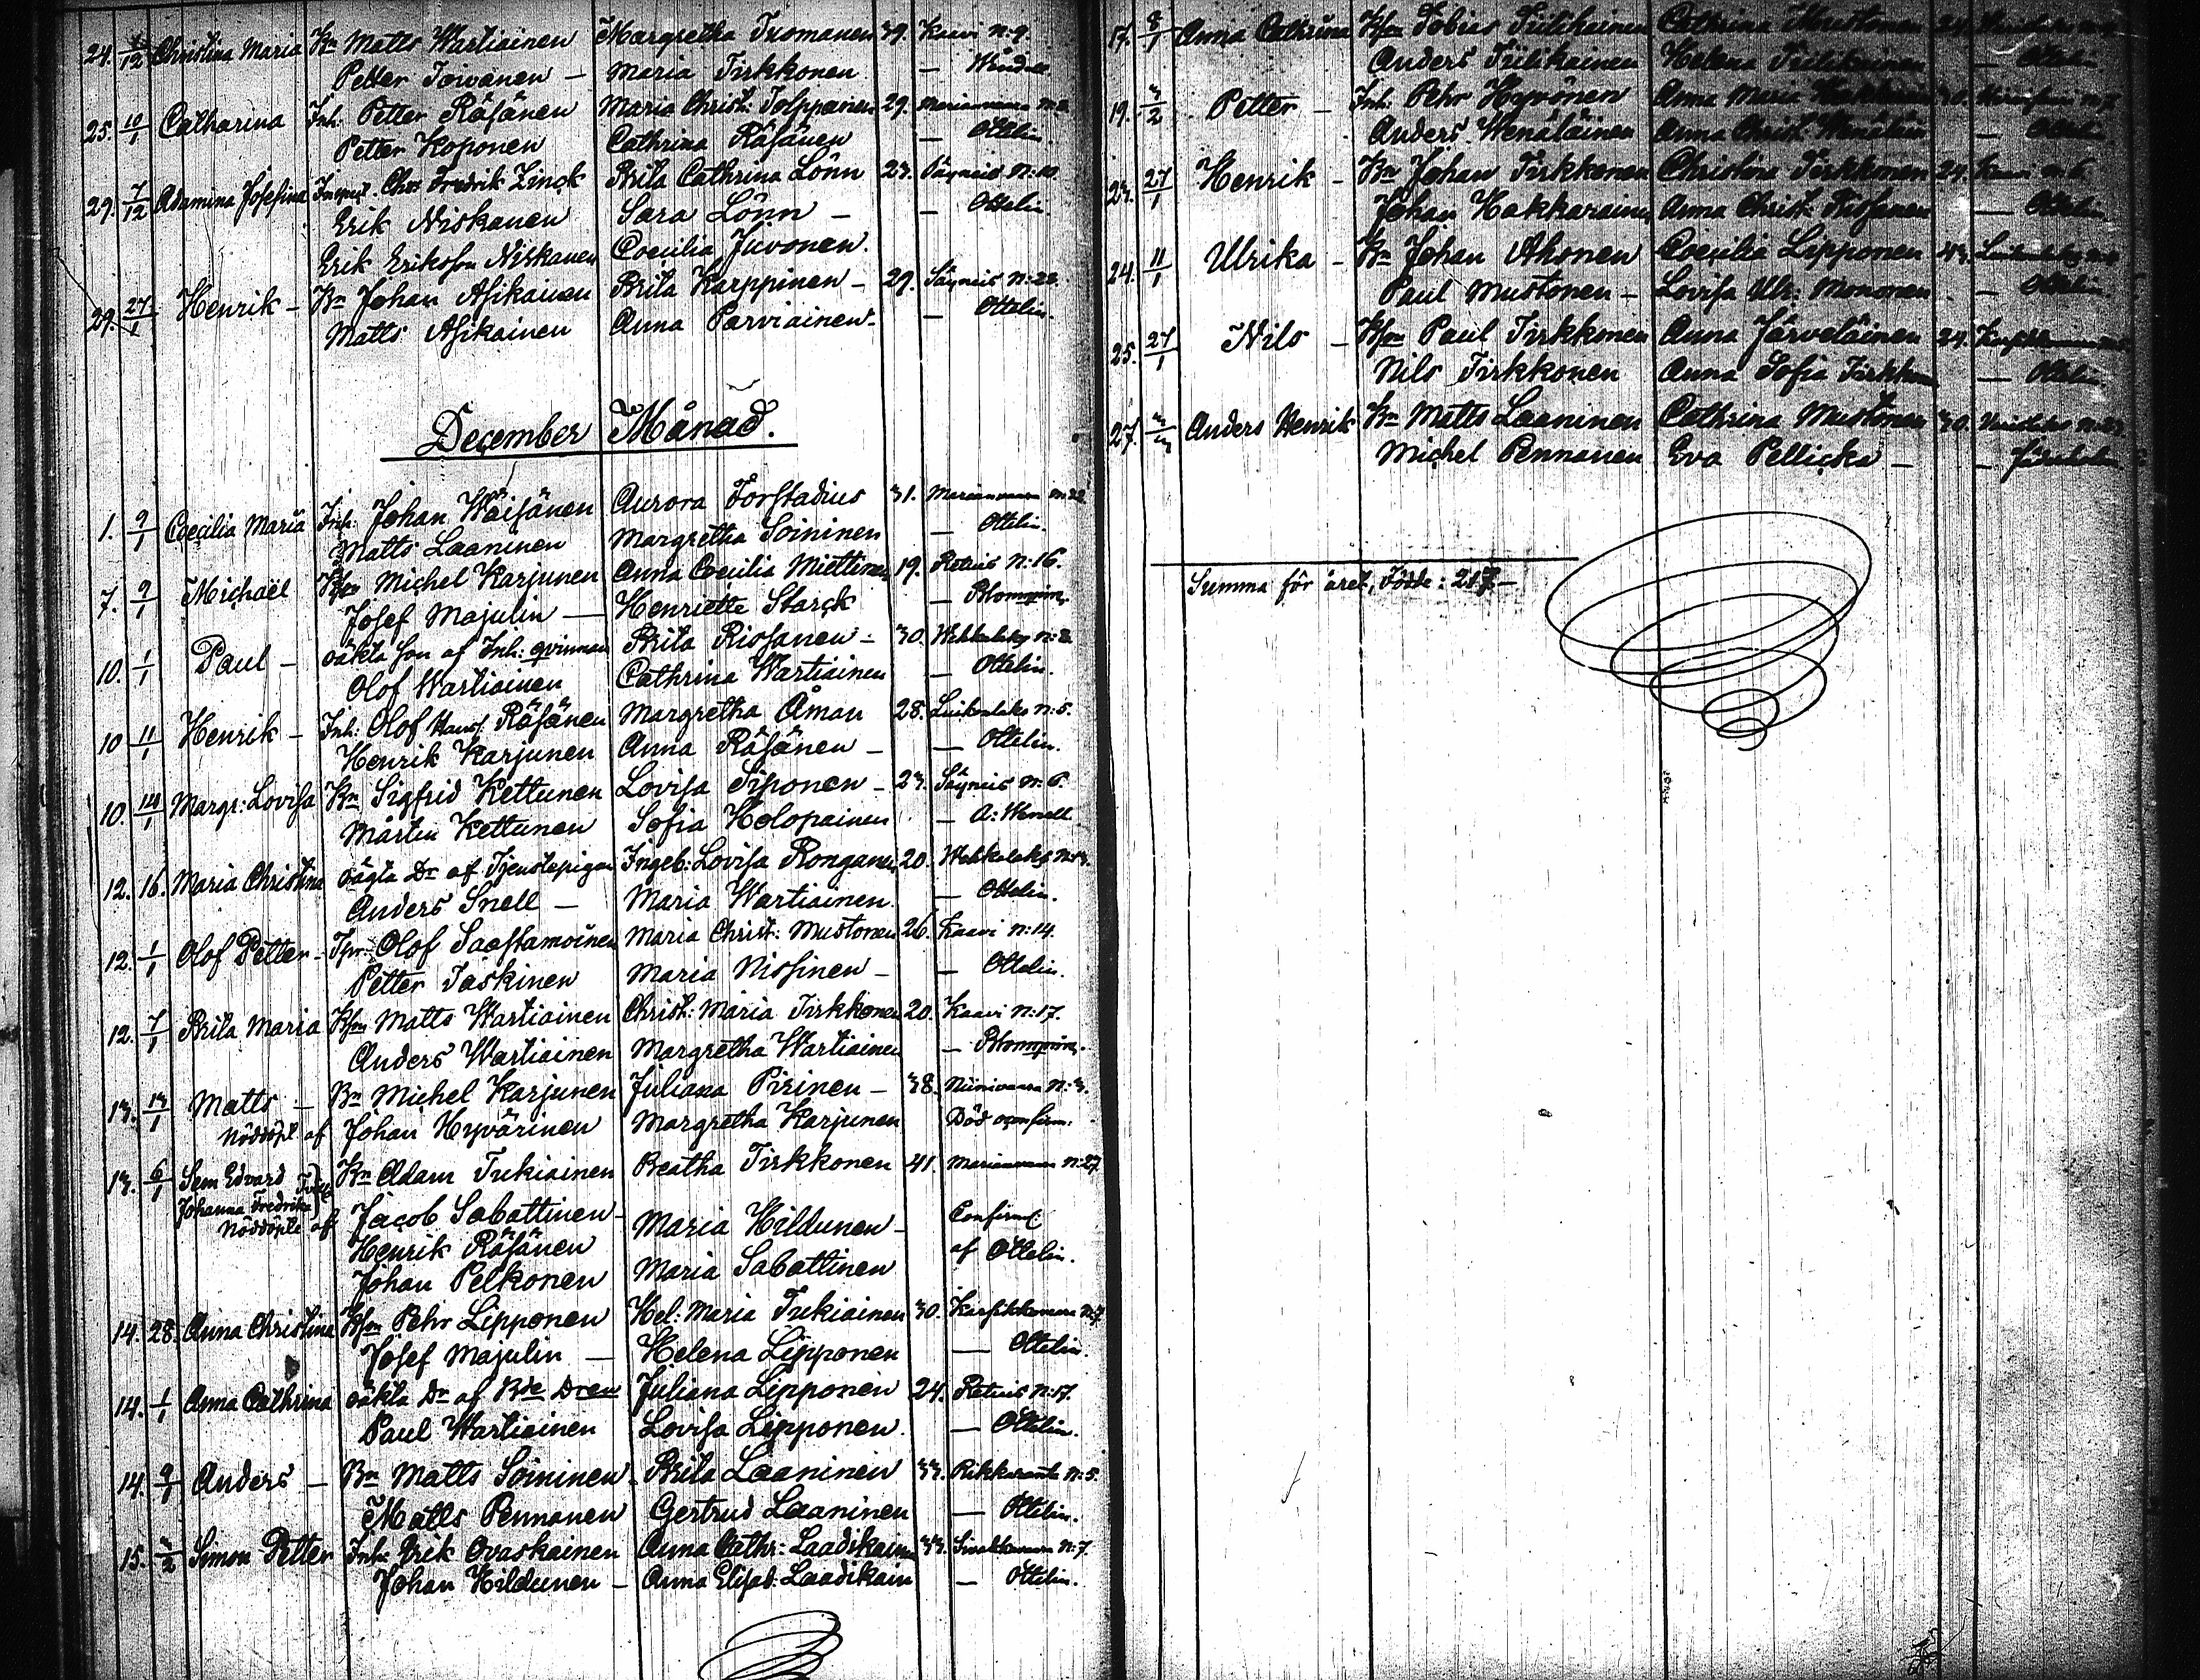 24. 12 Christina Maria Bn Matts Wartiainen Margretha Tromanen 39. Kaavi N:9.
Petter Toivanen — Maria Tirkkonen — Wendell
25. 10/1 Catharina Inh: Petter Räfänen Maria Christ: Tolppanen 29. Marianvaara
Petter Koponen Cathrina Räfänen — Ottelin.
29. 7/12 Adamina Josefina Chr: Fredrik Zinck Brita Cathrina Lönn 23. Säyneis N:10
Erik Niskanen Sara Lönn — — Ottelin.
Erik Eriksson Niskanen Coecilia Juvonen.
29. 27/1 Henrik — Bn Johan Asikainen Brita Karppinen — 29. Säyneis N:28.
Matts Asikainen Anna Parviainen — Ottelin.
December Månad.
1. 9/1 Coecilia Maria Inh: Johan Wäisänen Aurora Forstadius 31. Marianvaara N:22
Matts Laaninen Margretha Soininen — Ottelin.
7. 9/1 Michaël Bson Michel Karjunen Anna Coecilia Miettinen 19. Retuis N:16.
Josef Majulin — Henriette Starck — Blomqvist.
10. 1/1 Paul — oäkta son af Inh: qvinnan Brita Rissanen — 30. Wehkalaks N:2
Olof Wartiainen Cathrina Wartiainen — Ottelin.
10 11/1 Henrik — Inh: Olof Räfänen Margretha Åman 28. Luikonlaks N:5.
Henrik Karjunen Anna Räfänen — — Ottelin.
10. 14/1 Margr: Lovisa Bn Sigfrid Kettunen Lovisa Siponen — 23. Säyneis N:6.
Mårten Kettunen Sofia Holopainen — A: Wenell
12. 16. Maria Christina oägta Dr af Tjenstepigan Ingeb: Lovisa Ronganen 20. Wehkalaks N:13.
Anders Snell — Maria Wartiainen. — Ottelin.
12. 1/1 Olof Petter — Tpr: Olof Saastamoinen Maria Christ: Mustonen 26. Kaavi N:14.
Petter Taskinen Maria Nissinen — — Ottelin.
12. 7/1 Brita Maria Bson Matts Wartiainen Christ: Maria Tirkkonen 20. Kaavi N:17.
Anders Wartiainen Margretha Wartiainen — Blomqvist.
13. 13/1 Matts — Bn Michel Karjunen Juliana Pirinen — 38. Niinivaara N:3.
Nöddöpt af Johan Hyvärinen Margretha Karjunen Död oconfirm:
13. 6/1 Sem Edvard Bn Adam Tukiainen Beatha Tirkkonen 41. Marianvaara N:27
Johanna Fredrika
Nöddöpte af Jacob Sabattinen — Maria Hildunen — Confirm:
Henrik Räfänen af Ottelin.
Johan Pelkonen Maria Sabattinen
14. 28. Anna Christina Bson Pehr Lipponen Hel: Maria Tukiainen 30. Karsikkovaara N:7
Josef Majulin — Helena Lipponen — Ottelin.
14. 1/1 Anna Cathrina oäkta Dr af Bde Dren Juliana Lipponen 24. Retuis N:17.
Paul Wartiainen Lovisa Lipponen. — Ottelin.
14. 9/1 Anders — Bn Matts Soininen — Brita Laaninen 33. Rikkaranta N:5.
Matts Pennanen Gertrud Laaninen — Ottelin.
15. 3/2 Simon Petter Inh: Erik Ovaskainen Anna Cathr: Laadikainen 33. N:7.
Johan Hildunen — Anna Elisab: Laadikain — Ottelin.
17. 8/1 Anna Cathrina Bson Tobias Tiilikainen Cathrina Mustonen 24.
Anders Tiilikainen Helena Tiilikainen — Ottelin
19. 3/2 Petter — Inh: Pehr Hyvönen Anna Maria
Anders Wenäläinen Anna Christ: Wenäläin —
23. 27/1 Henrik — Bn Johan Tirkkonen Christina Tirkkonen 24. Kaavi N:6.
Johan Hakkarainen Anna Christ: — Ottelin.
24. 11/1 Ulrika — Bn Johan Ahonen Coecilia Lipponen 43.
Paul Mustonen — Lovisa Ulr: Mononen — Ottelin.
25. 27/1 Nils — Bson Paul Tirkkonen Anna Järveläinen 24.
Nils Tirkkonen Anna Sofia Tirkkonen — Ottelin.
27. 3/3 Anders Henrik Bn Matts Laaninen Cathrina Mustonen 30.
Michel Pennanen Eva Pellicka — —
Summa för året, Födde: 217 —